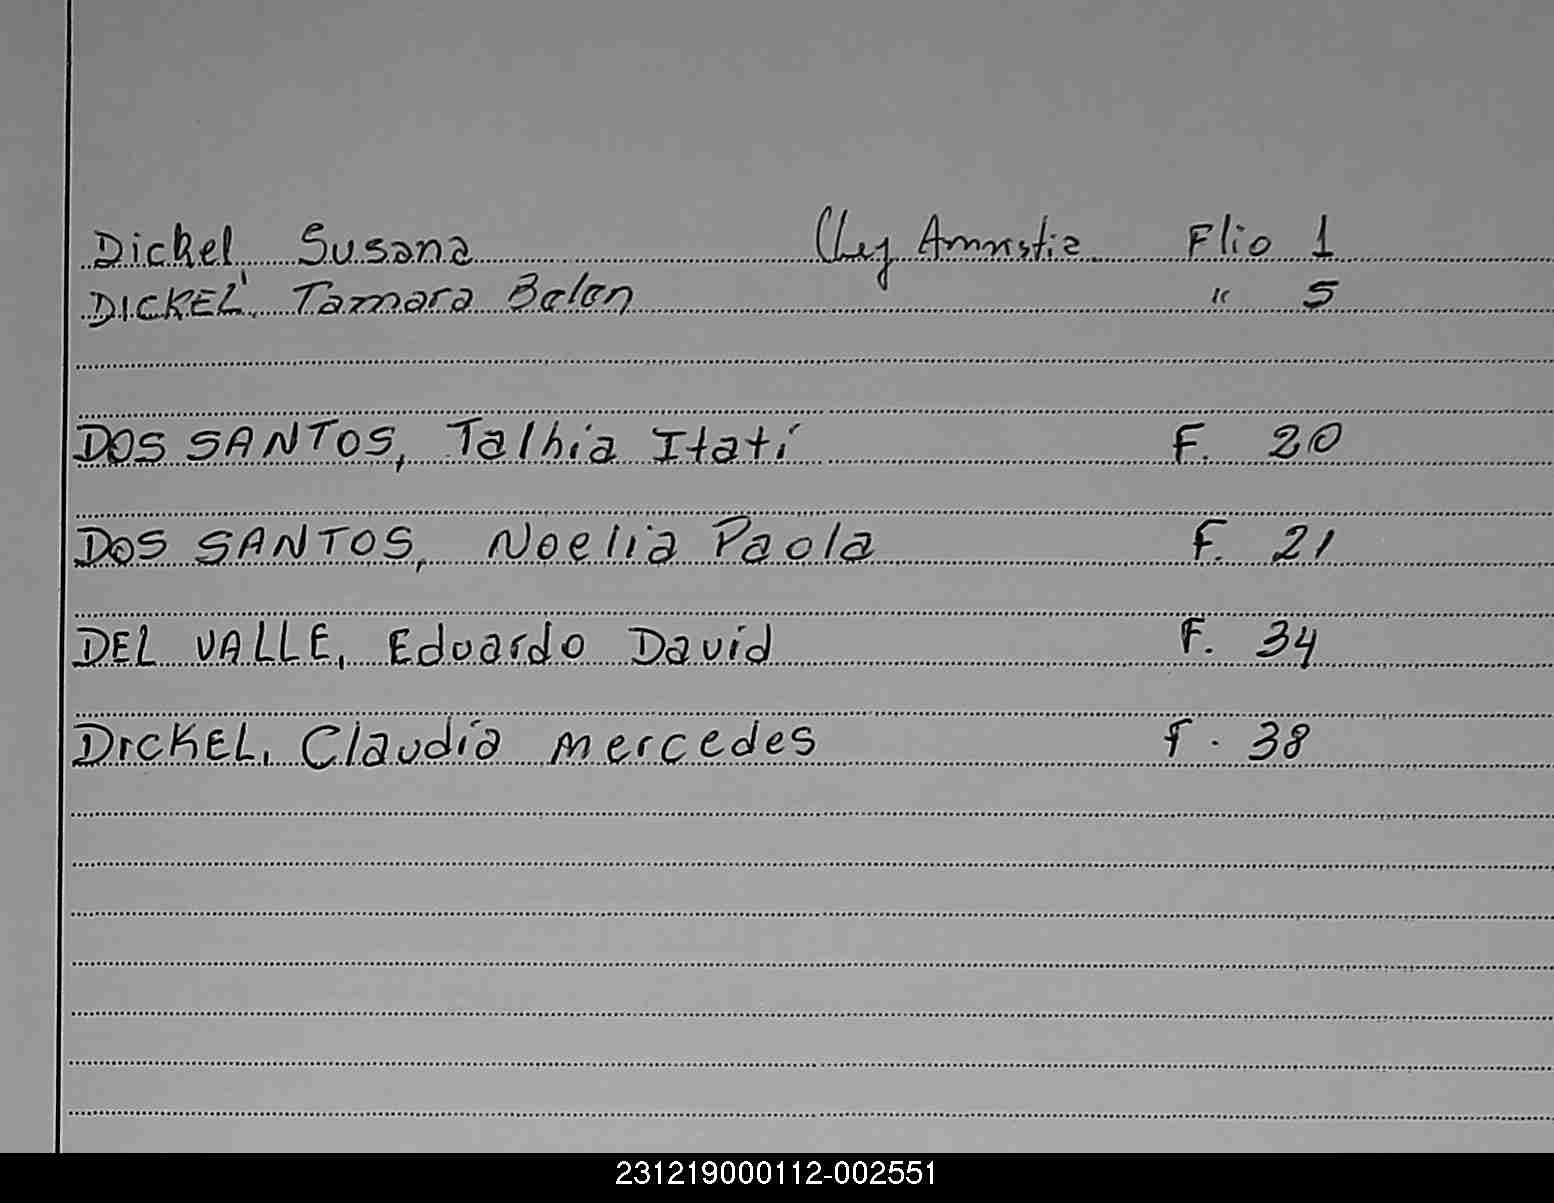 Dickel, Susana (Ley Amnistia Flio 1
DICKEL, Tamara Belen " 5
DOS SANTOS, Talhia Itatí F. 20
DOS SANTOS, Noelia Paola F. 21
DEL VALLE, Eduardo David F. 34
DICKEL, Claudia Mercedes F. 38
231219000112-002551